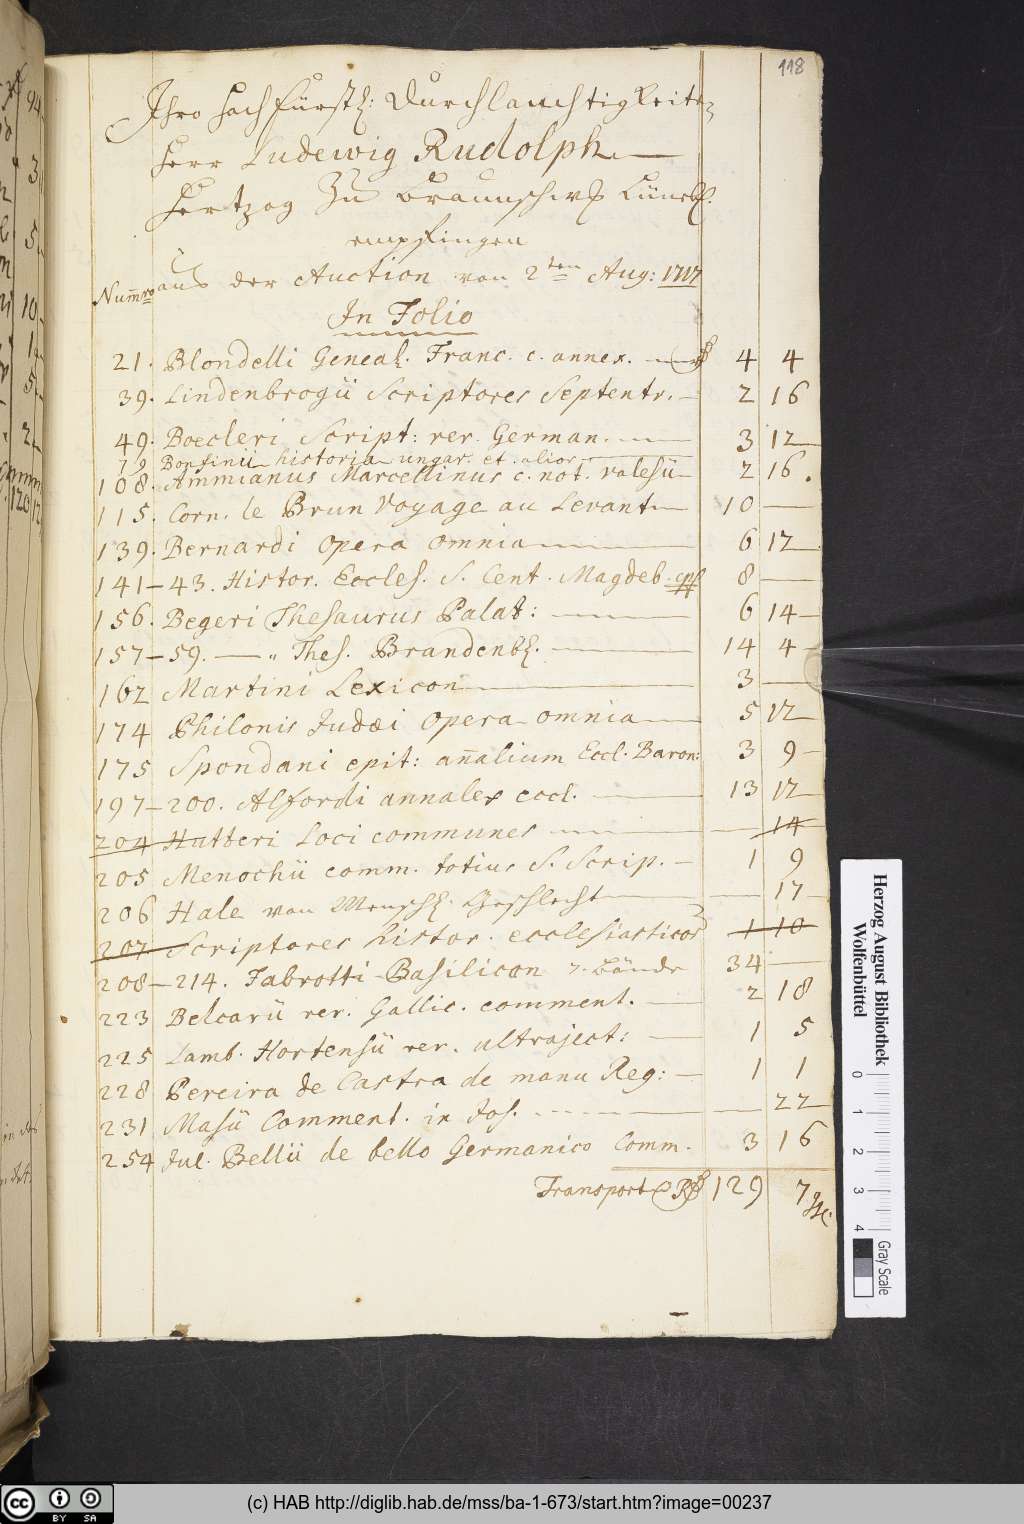 118
Ihro Hochfürstl: Durchlauchtigkeiten
Herr Ludewig Rudolph
Hertzog Zu Braunschw. Lüneb.
empfingen
Numro aus der Auction von 2ten Aug: 1717
In Folio
21. Blondelli Geneal. Franc. c. annex. 4 4
39. Lindenbrogii Scriptores Septentr. 2 16
49. Boecleri Script: rer. German. 3 12
79 Bonfinii historia ungar. et alior
108. Ammianus Marcellinus c. not. valesii 2 16.
115. Corn. le Brun Voyage au Levant 10
139. Bernardi opera omnia 6 12
141-43. Histor. Eccles. S. Cent. Magdeb. 8
156. Begeri Thesaurus Palat: 6 14
157-59. — " Thes. Brandenb. 14 4
162 Martini Lexicon 3
174 Philonis Judæi opera omnia 5 12
175 Spondani epit: analium Eccl. Baron: 3 9
197-200. Alfordi annales eccl. 13 12
204 Hutteri Loci communes 14
205 Menochii comm. totius S. Scrip. 1 9
206 Hale von Menschl. Geschlecht 17
207 Scriptores histor. ecclesiasticos 1 10
208-214. Fabrotti Basilicon 7. Bände 34
223 Belcarii rer. Gallic. comment. 2 18
225 Lamb. Hortensii rer. ultraject: 1 5
228 Pereira de Castra de manu Reg: 1 1
231 Masii Comment. in Jos. 22
254 Jul. Bellii de bello Germanico Comm. 3 16
Transport 129 7
Herzog August Bibliothek
Wolfenbüttel
0 1 2 3 4
Gray Scale
(c) HAB http://diglib.hab.de/mss/ba-1-673/start.htm?image=00237
cc BY SA